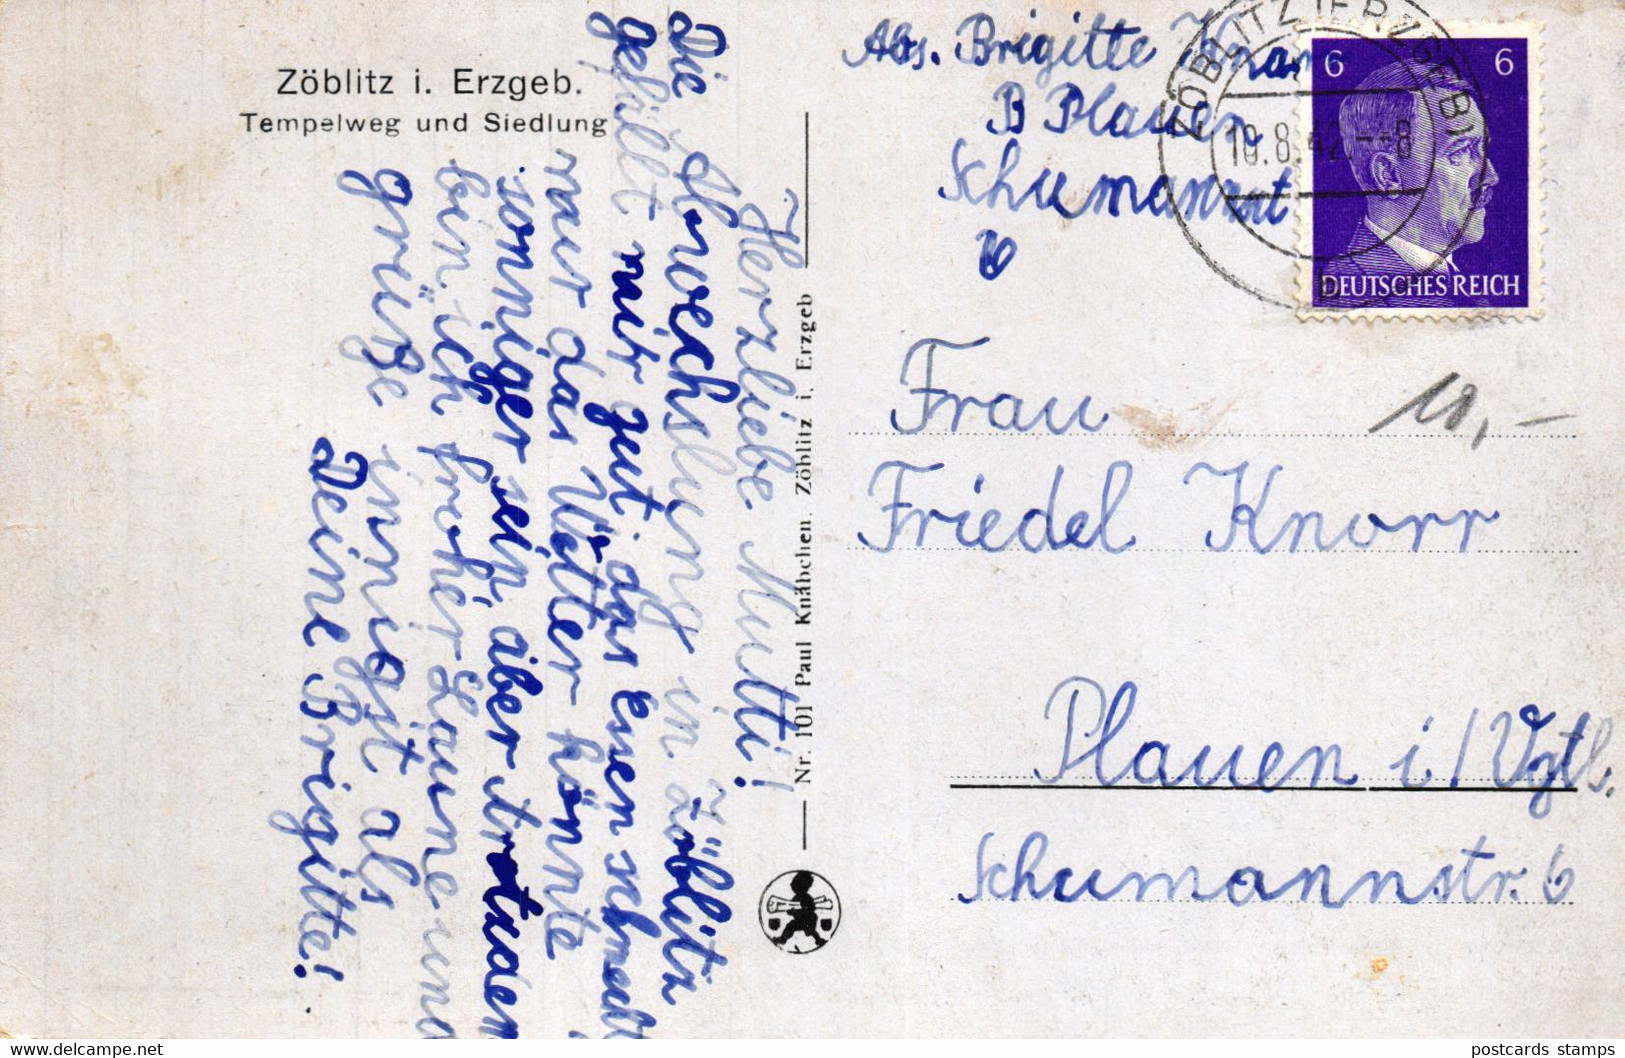 Zöblitz i. Erzgeb.
Tempelweg und Siedlung
Herzliebe Mutti!
Die Abwechslung in Zöblitz
gefällt mir gut, das Essen schmeckt
nur das Wetter könnte
sonniger sein, aber trotzdem
bin ich froher Laune und
grüße innigst als
Deine Brigitte!
Nr. 101 Paul Knäbchen. Zöblitz i. Erzgeb
Abs. Brigitte
Plauen
Schumannstr
6
ZÖBLITZ (ERZGEB)
10.8.42.-8
b
6 6
DEUTSCHES REICH
10,-
Frau
Friedel Knorr
Plauen i/Vgtl.
Schumannstr. 6
postcards stamps